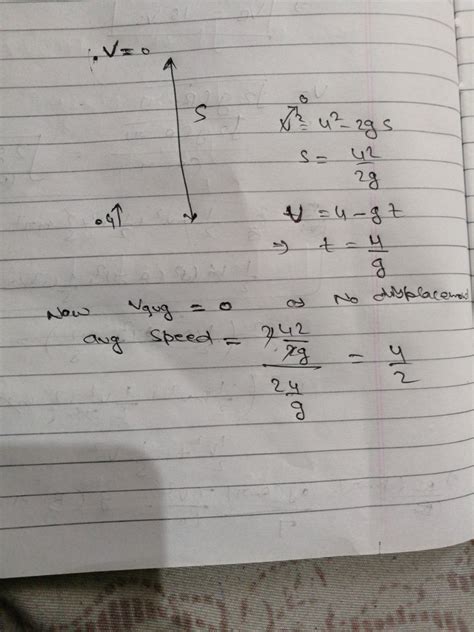 .V=0
S
V² = u² - 2gs
0
s = u²/2g
ou↑
V = u - gt
⇒ t = u/g
Now Vavg = 0 as No displacement
avg speed = 2u²/2g / 2u/g = u/2